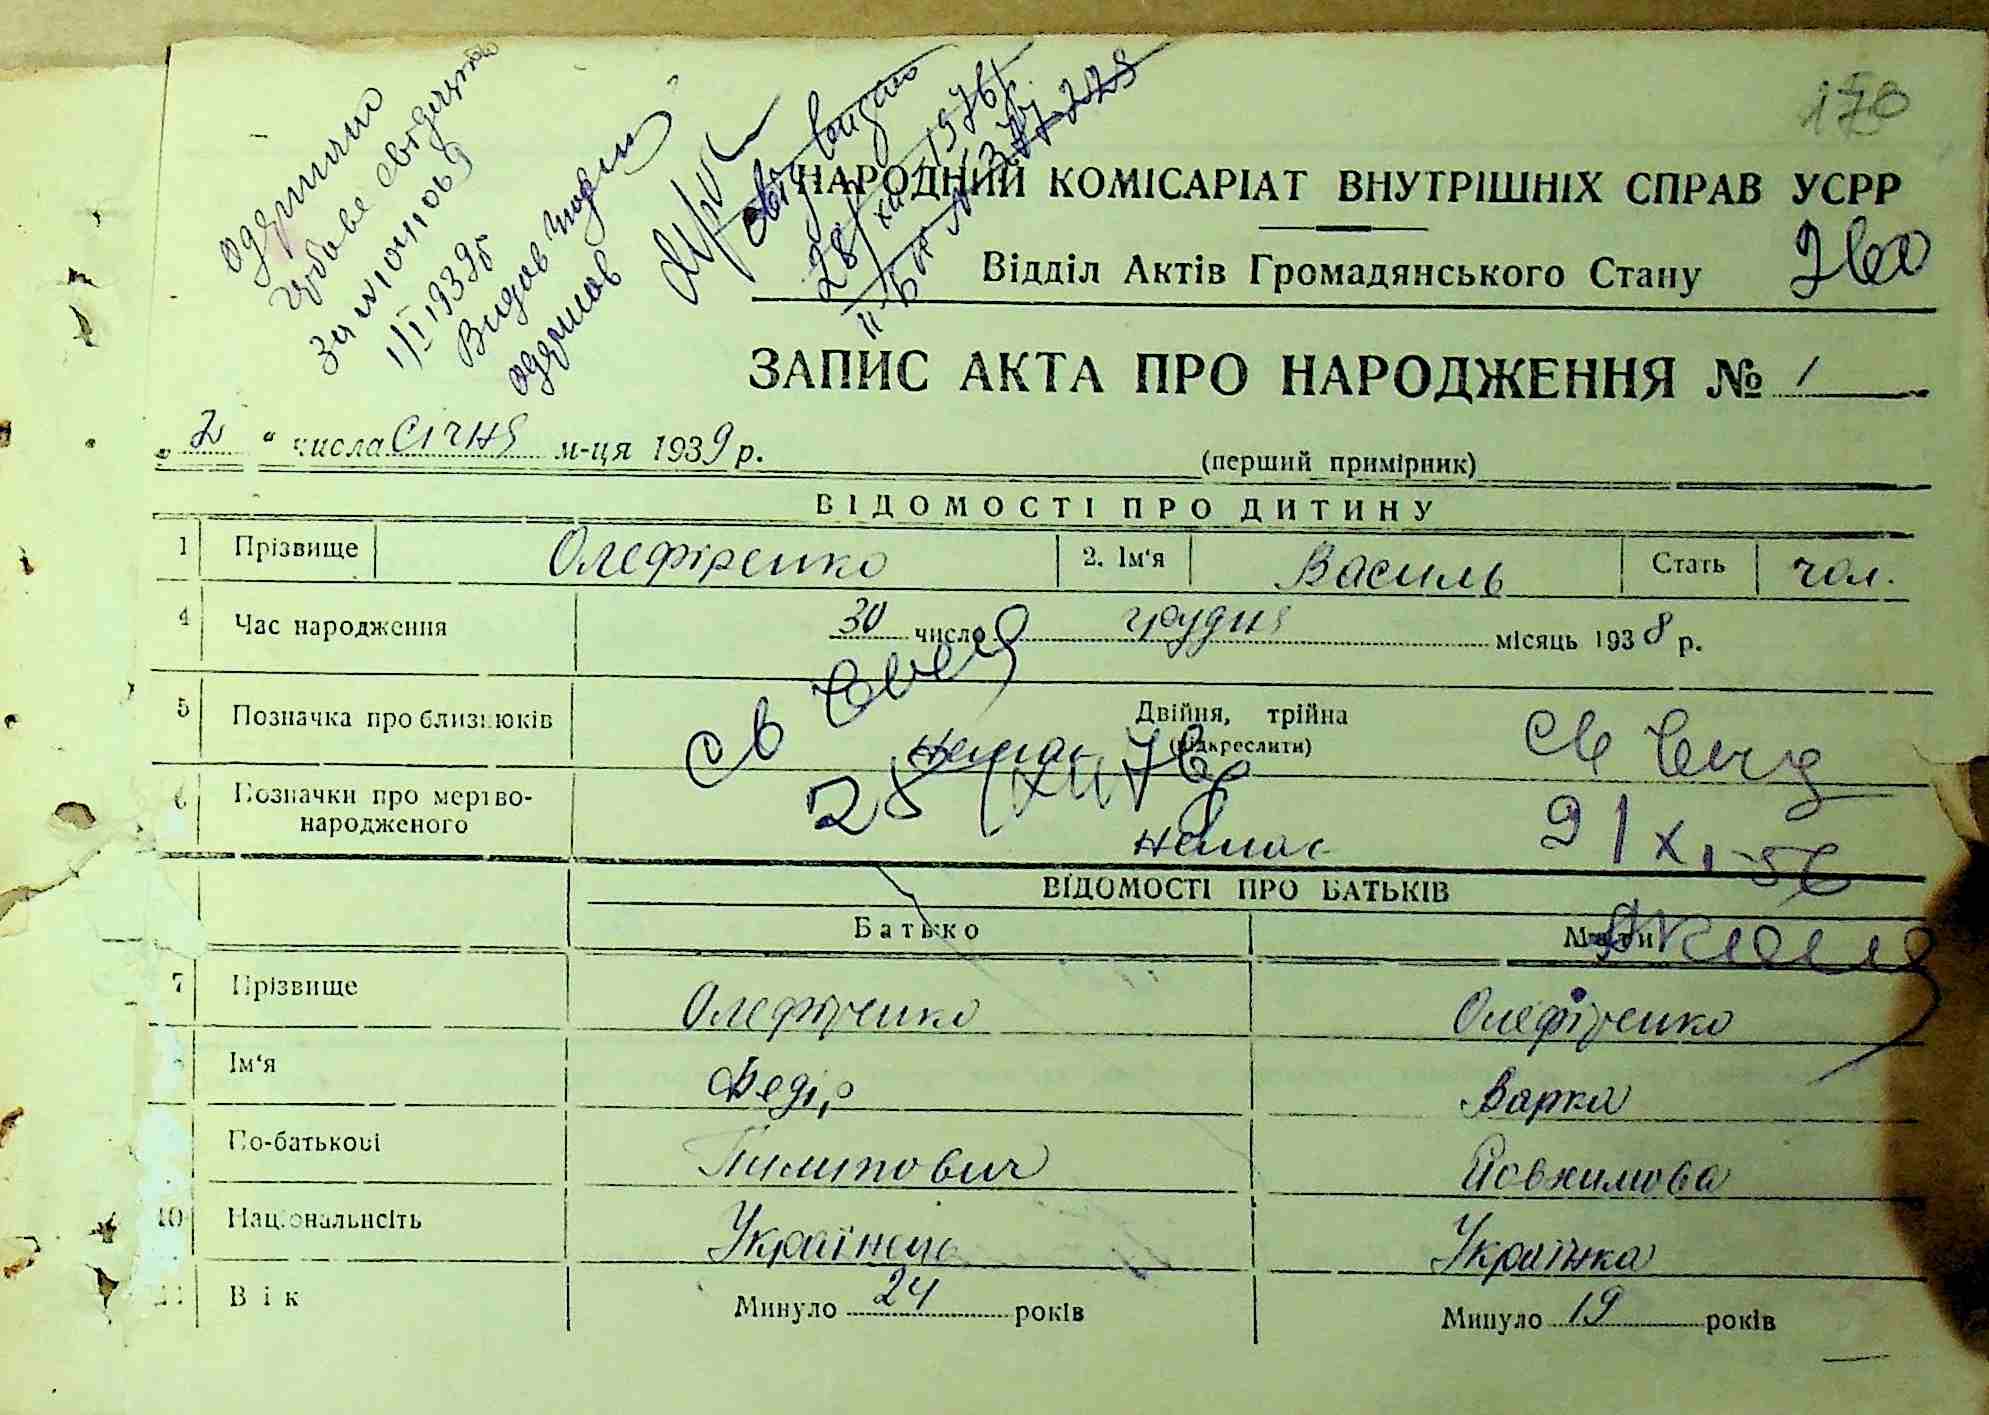 170
одержано
За № 104106
1/I 1939р
Видав
одержав
св. видано
28/XII 1976
НАРОДНИЙ КОМІСАРІАТ ВНУТРІШНІХ СПРАВ УСРР
Відділ Актів Громадянського Стану
ЗАПИС АКТА ПРО НАРОДЖЕННЯ № 1
„2“ числа січня м-ця 1939 р.
(перший примірник)
ВІДОМОСТІ ПРО ДИТИНУ
1 Прізвище Олефіренко 2. Ім'я Василь Стать чол.
4 Час народження 30 число грудня місяць 1938 р.
5 Позначка про близнюків Двійня, трійна
(підкреслити)
немає
6 Позначки про мертво-
народженого
немає
28/XII 76
9/XI-56
ВІДОМОСТІ ПРО БАТЬКІВ
Батько Мати
7 Прізвище Олефіренко Олефіренко
Ім'я Федір Варка
По-батькові Пилипович Йовхимова
10 Національність Українець Українка
11 Вік Минуло 24 років Минуло 19 років